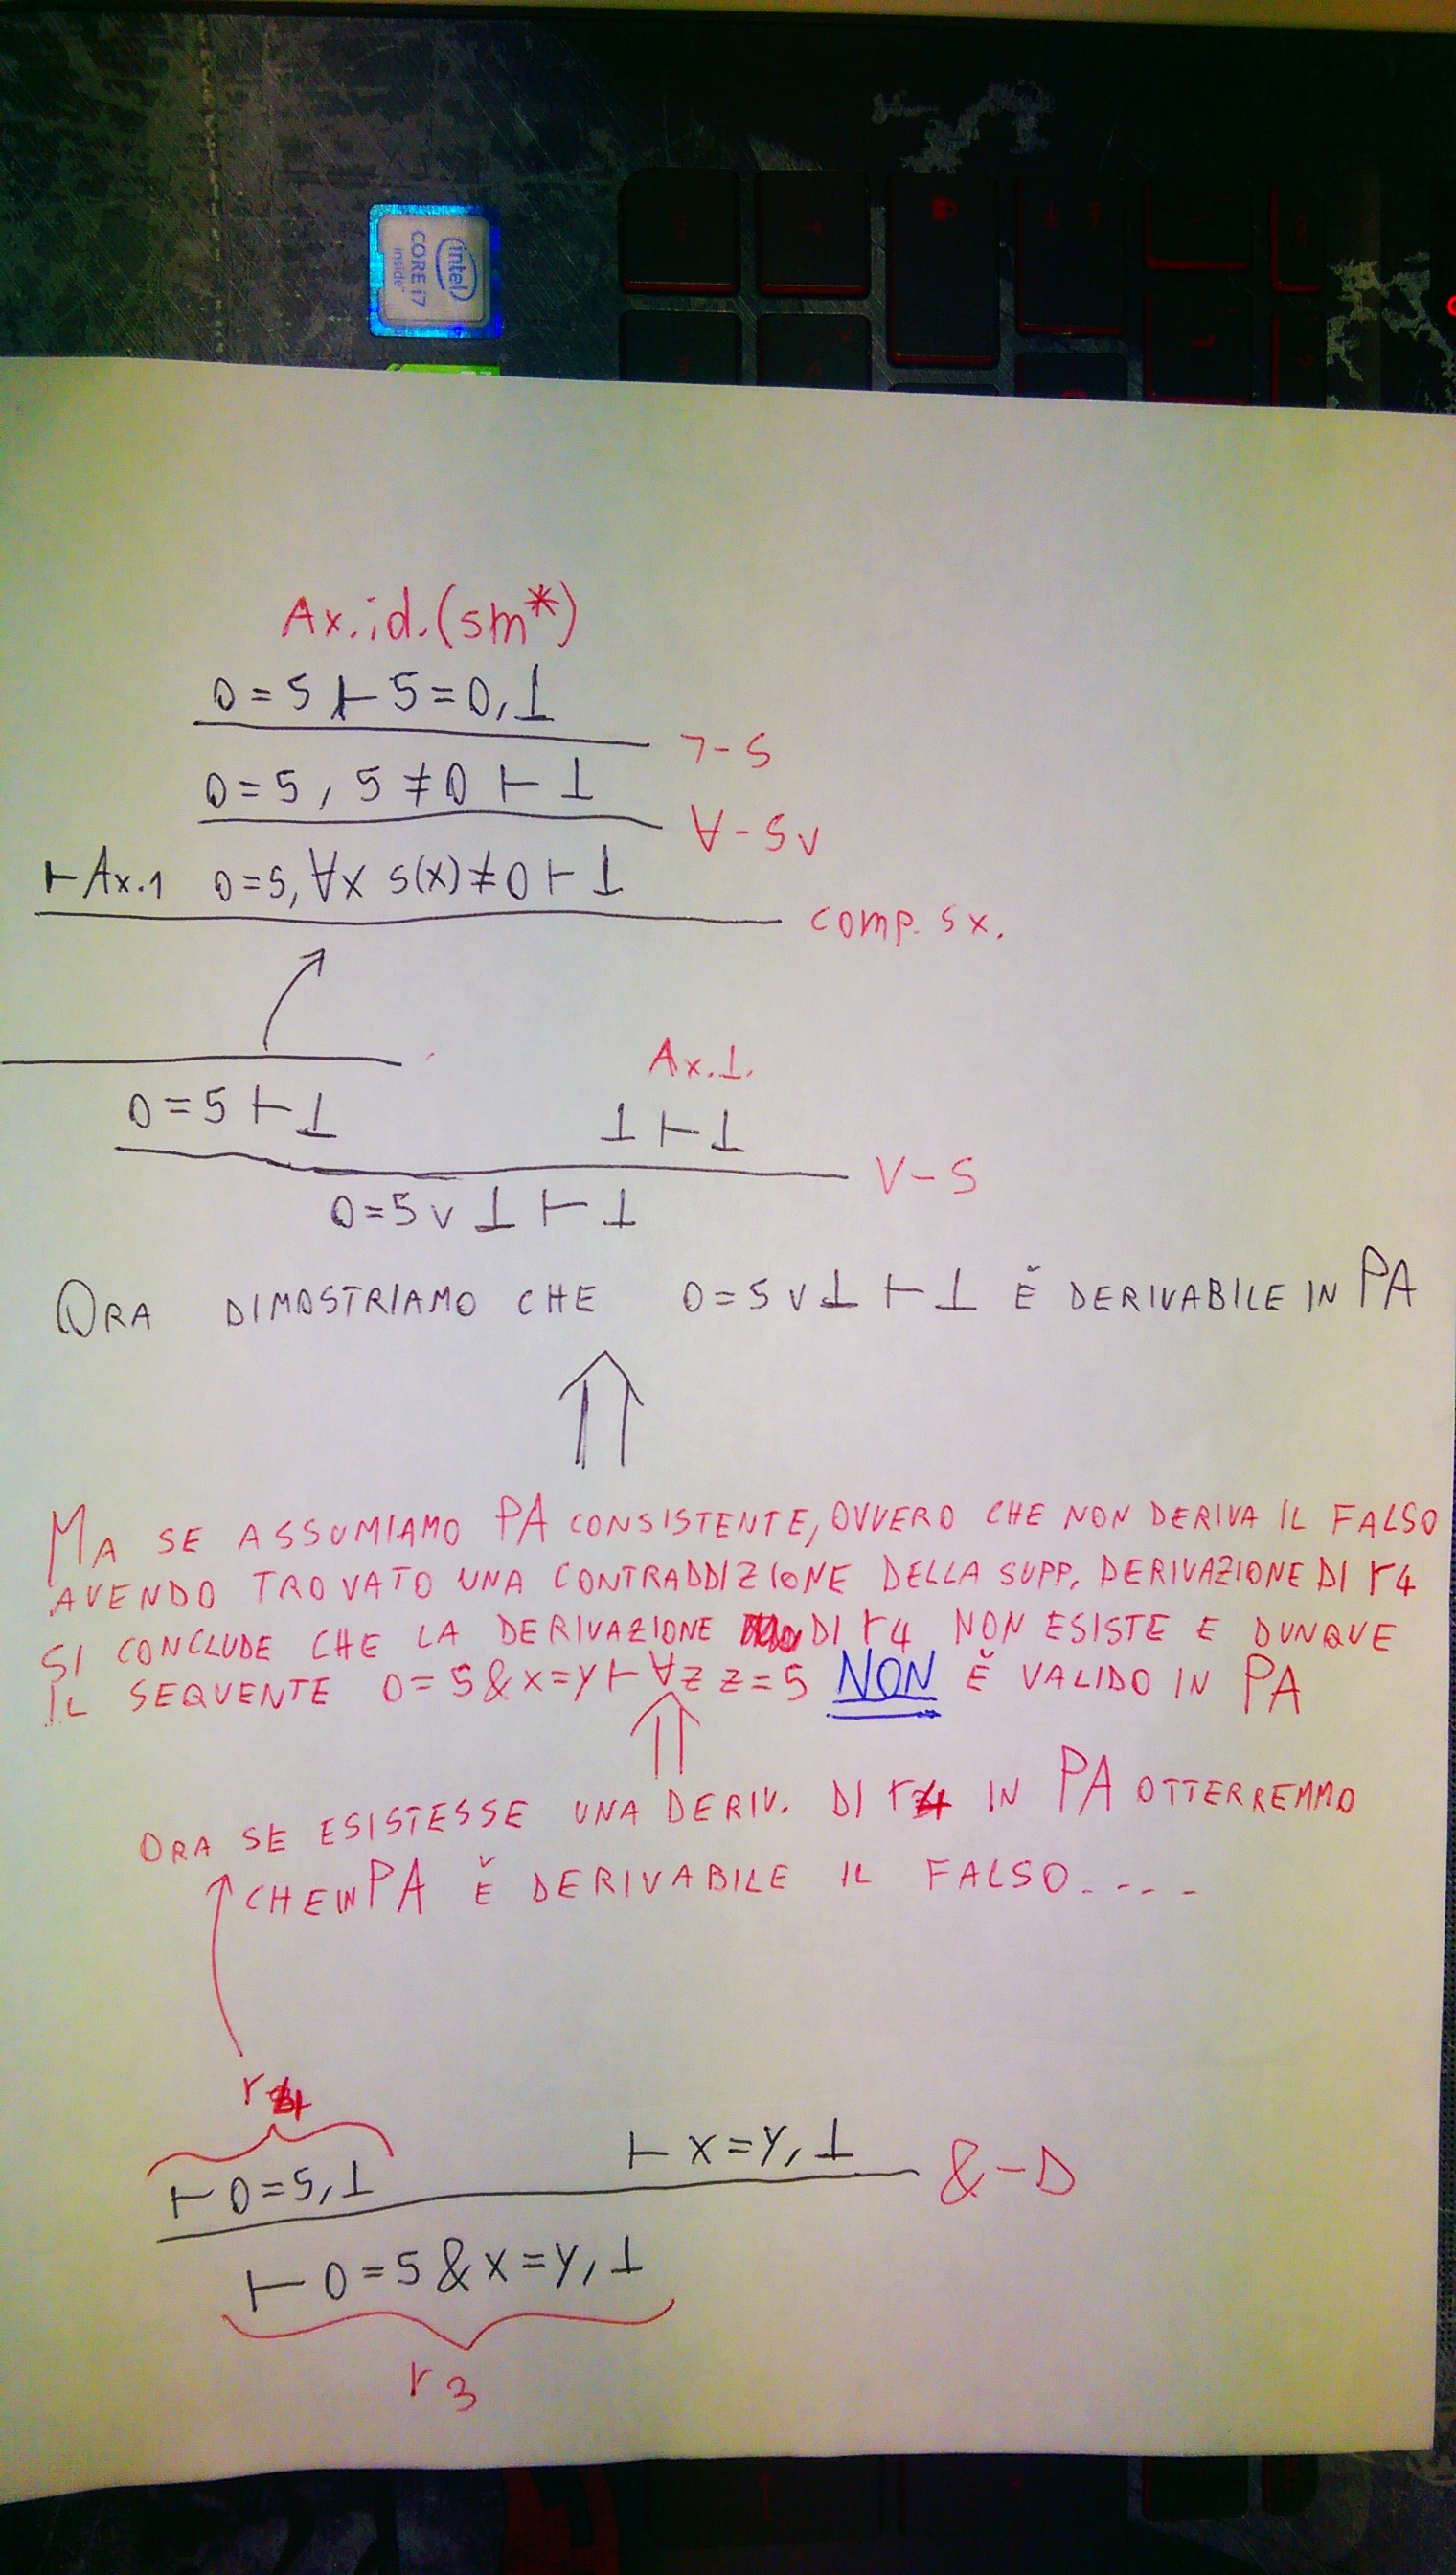 intel
CORE i7
inside
Ax.id.(sm*)
0=5 ⊢ 5=0,⊥
¬-S
0=5, 5≠0 ⊢ ⊥
∀-Sv
⊢Ax.1 0=5, ∀x s(x)≠0 ⊢ ⊥
comp. sx.
0=5 ⊢ ⊥
Ax.⊥.
⊥ ⊢ ⊥
V-S
0=5 v ⊥ ⊢ ⊥
ORA DIMOSTRIAMO CHE 0=5 v ⊥ ⊢ ⊥ È DERIVABILE IN PA
MA SE ASSUMIAMO PA CONSISTENTE, OVVERO CHE NON DERIVA IL FALSO
AVENDO TROVATO UNA CONTRADDIZIONE DELLA SUPP. DERIVAZIONE DI r4
SI CONCLUDE CHE LA DERIVAZIONE DI r4 NON ESISTE E DUNQUE
IL SEQUENTE 0=5&x=y⊢∀z z=5 NON È VALIDO IN PA
ORA SE ESISTESSE UNA DERIV. DI r4 IN PA OTTERREMMO
CHE IN PA È DERIVABILE IL FALSO....
r4
⊢ 0=5,⊥
⊢ x=y,⊥
&-D
⊢ 0=5&x=y,⊥
r3